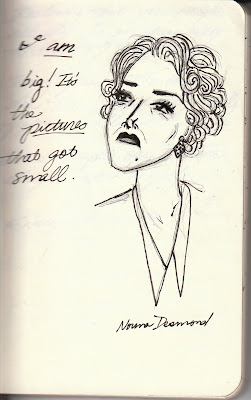 am
big! It's
the
pictures
that got
small.
Norma Desmond